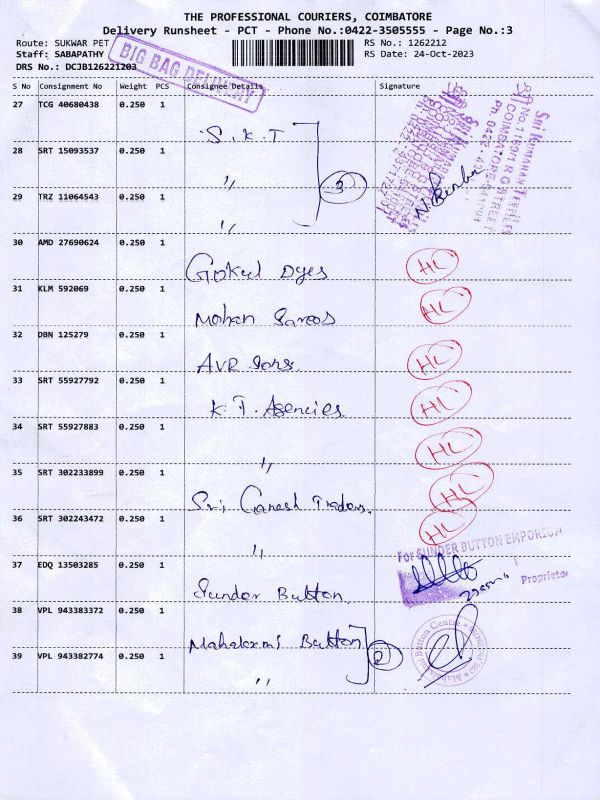 THE PROFESSIONAL COURIERS, COIMBATORE
Delivery Runsheet - PCT - Phone No.:0422-3505555 - Page No.:3
Route: SUKWAR PET
RS No.: 1262212
Staff: SABAPATHY
RS Date: 24-Oct-2023
DRS No.: DCJB126221203
BIG BAG DELIVERY
S No Consignment No Weight PCS Consignee Details Signature
27 TCG 40680438 0.250 1
S.K.T
28 SRT 15093537 0.250 1
"
3
29 TRZ 11064543 0.250 1
"
SRI KUMARAN TEXTILES
COIMATORE-641001
30 AMD 27690624 0.250 1
Gokul Dyes HL
31 KLM 592069 0.250 1
Mohan Sarees HL
32 DBN 125279 0.250 1
AVR Sons HL
33 SRT 55927792 0.250 1
K.T. Agencies HL
34 SRT 55927883 0.250 1
" HL
35 SRT 302233899 0.250 1
Sri Ganesh Traders. HL
36 SRT 302243472 0.250 1
" HL
For SUNDER BUTTON EMPORIUM
37 EDQ 13503285 0.250 1
Proprietor
Sundar Button
38 VPL 943383372 0.250 1
Mahalaxmi Button
2
39 VPL 943382774 0.250 1
"